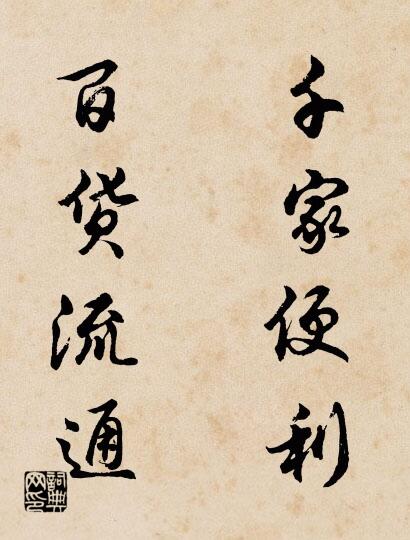 千家便利
百货流通
詞典网印